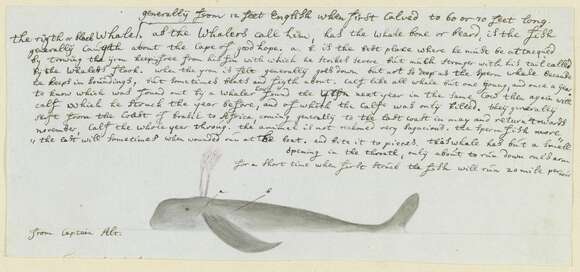 generally from 12 feet English when first calved to 60 or 70 feet long.
the rigth or black Whale, as the Whalers call him, has the whale bone or beard, is the fish
generally caugth about the Cape of good hope. a. & is the best place where he must be attacqued
by trowing the iron keep free from his fin with which he strikes severe but much stronger with his tail called
by the Whalers flook. when the iron is felt generally goes down but not so deep as the sperm whale because
he keeps in soundings, but sometimes that's and figth about. calf like all whale but one young, and once a year
to know which was found out by a Whaler found the next year in the same and then again with
calf which he struck the year before, and of which the calf was only killed. they generally
shift from the Coast of brasil to Africa, coming generally to the last coast in may and return towards
november. Calf the whole year throug. the animal is not reckoned very sagacious. the sperm fish more,
the last will sometimes when wounded run at the boat, and bite it to pieces. this whale has but a small
opening in the throath, only about to run down only arm
for a short time when first struck the fish will run 20 mile per hour
a
b
from Captain Alt.